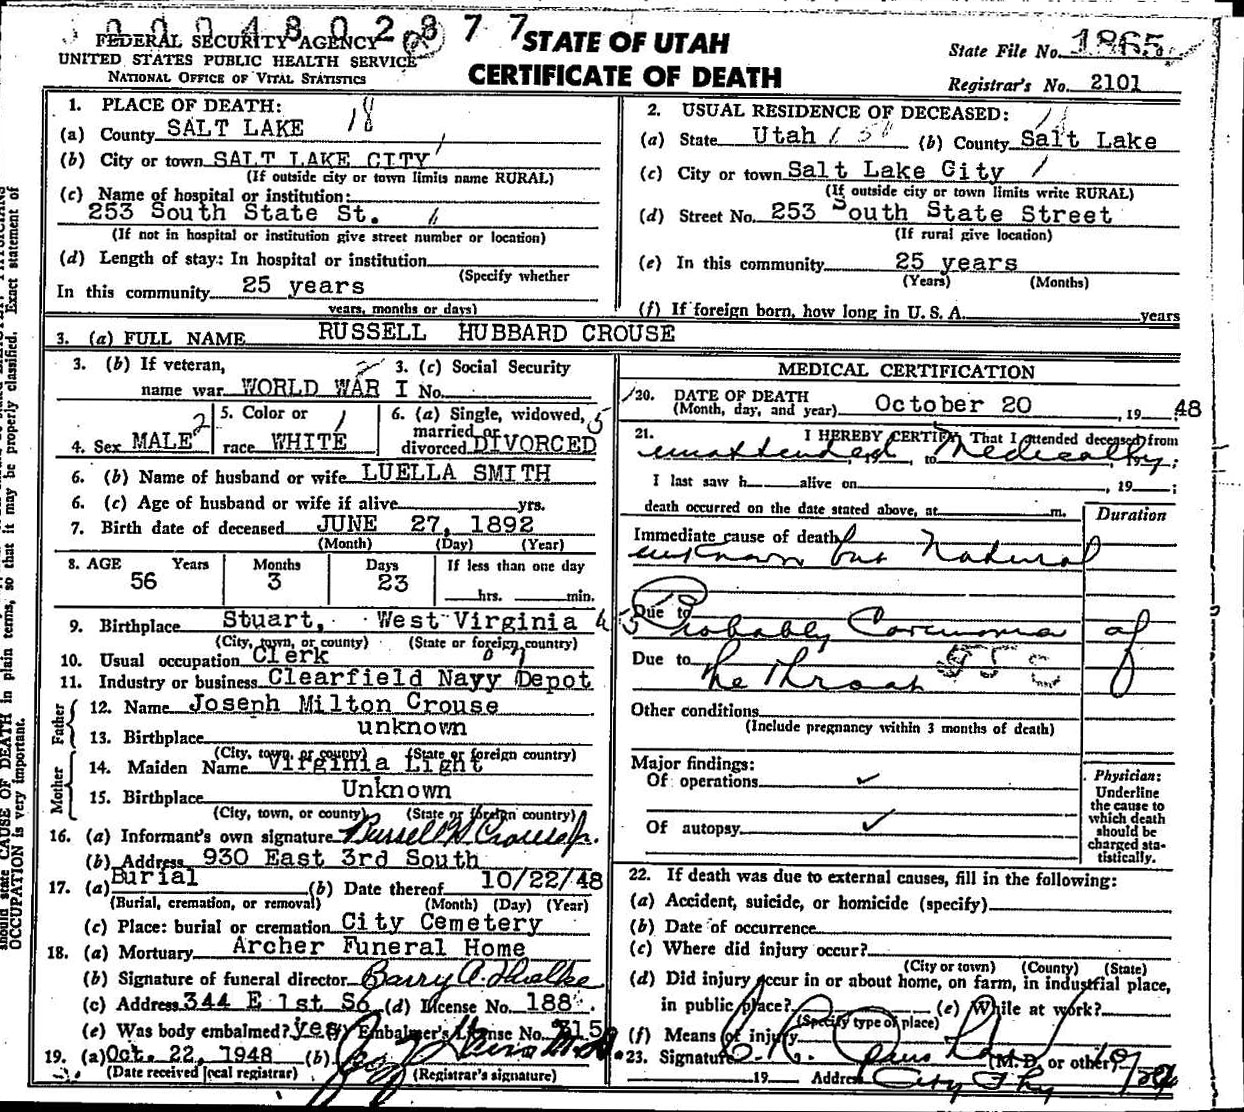 0 0 0 4 8 0 2 8 7 7
FEDERAL SECURITY AGENCY
UNITED STATES PUBLIC HEALTH SERVICE
NATIONAL OFFICE OF VITAL STATISTICS
STATE OF UTAH
CERTIFICATE OF DEATH
State File No. 1865
Registrar's No. 2101
1. PLACE OF DEATH: 18
(a) County SALT LAKE
(b) City or town SALT LAKE CITY
(If outside city or town limits name RURAL)
(c) Name of hospital or institution:
253 South State St.
(If not in hospital or institution give street number or location)
(d) Length of stay: In hospital or institution
(Specify whether
In this community 25 years
years, months or days)
2. USUAL RESIDENCE OF DECEASED:
(a) State Utah (b) County Salt Lake
(c) City or town Salt Lake City
(If outside city or town limits write RURAL)
(d) Street No. 253 South State Street
(If rural give location)
(e) In this community 25 years
(Years) (Months)
(f) If foreign born, how long in U. S. A. years
3. (a) FULL NAME RUSSELL HUBBARD CROUSE
3. (b) If veteran, 3. (c) Social Security
name war WORLD WAR I No.
4. Sex MALE 2
5. Color or
race WHITE
6. (a) Single, widowed, 5
married or
divorced DIVORCED
6. (b) Name of husband or wife LUELLA SMITH
6. (c) Age of husband or wife if alive yrs.
7. Birth date of deceased JUNE 27, 1892
(Month) (Day) (Year)
8. AGE Years Months Days If less than one day
56 3 23 hrs. min.
9. Birthplace Stuart, West Virginia
(City, town, or county) (State or foreign country)
10. Usual occupation Clerk
11. Industry or business Clearfield Navy Depot
Father
12. Name Joseph Milton Crouse
13. Birthplace unknown
(City, town, or county) (State or foreign country)
Mother
14. Maiden Name Virginia Light
15. Birthplace Unknown
(City, town, or county) (State or foreign country)
16. (a) Informant's own signature Russel H Crouse Jr.
(b) Address 930 East 3rd South
17. (a) Burial (b) Date thereof 10/22/48
(Burial, cremation, or removal) (Month) (Day) (Year)
(c) Place: burial or cremation City Cemetery
18. (a) Mortuary Archer Funeral Home
(b) Signature of funeral director
(c) Address 344 E 1st So (d) License No. 188
(e) Was body embalmed? yes (f) Embalmer's License No. 315
19. (a) Oct. 22, 1948 (b)
(Date received local registrar) (Registrar's signature)
MEDICAL CERTIFICATION
20. DATE OF DEATH
(Month, day, and year) October 20, 19 48
21. I HEREBY CERTIFY, That I attended deceased from
unattended, 19 , to Medically, 19 ;
I last saw h alive on , 19 ;
death occurred on the date stated above, at m.
Duration
Immediate cause of death
unknown but Natural
Due to
Probably Carcinoma of
Due to the Throat
Other conditions
(Include pregnancy within 3 months of death)
Major findings:
Of operations ✓
Of autopsy ✓
Physician:
Underline
the cause to
which death
should be
charged sta-
tistically.
22. If death was due to external causes, fill in the following:
(a) Accident, suicide, or homicide (specify)
(b) Date of occurrence
(c) Where did injury occur?
(City or town) (County) (State)
(d) Did injury occur in or about home, on farm, in industrial place,
in public place? (e) While at work?
(Specify type of place)
(f) Means of injury
23. Signature (M. D. or other)
19 Address City
should state CAUSE OF DEATH in plain terms, so that it may be properly classified. Exact statement of
OCCUPATION is very important.